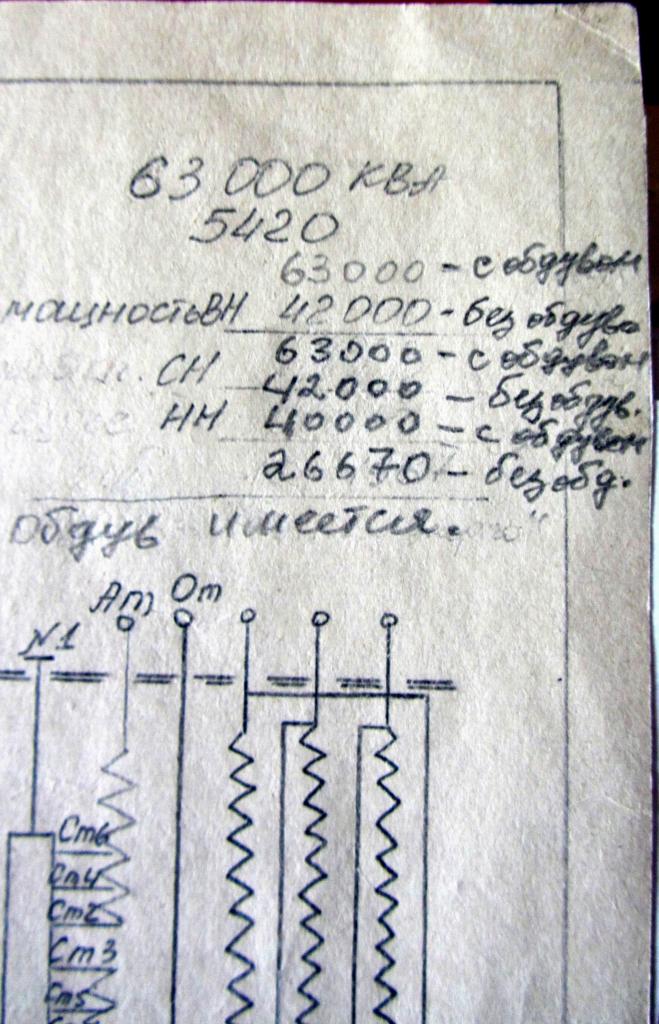 63 000 КВА
5420
63000 - с обдувом
мощность ВН 42000 - без обдува
63000 - с обдувом
СН 42000 - без обдув.
НН 40000 - с обдувом
26670 - без обд.
обдув имеется.
Аm Оm
N1
Cm6
Cm4
Cm2
Cm3
Cm5